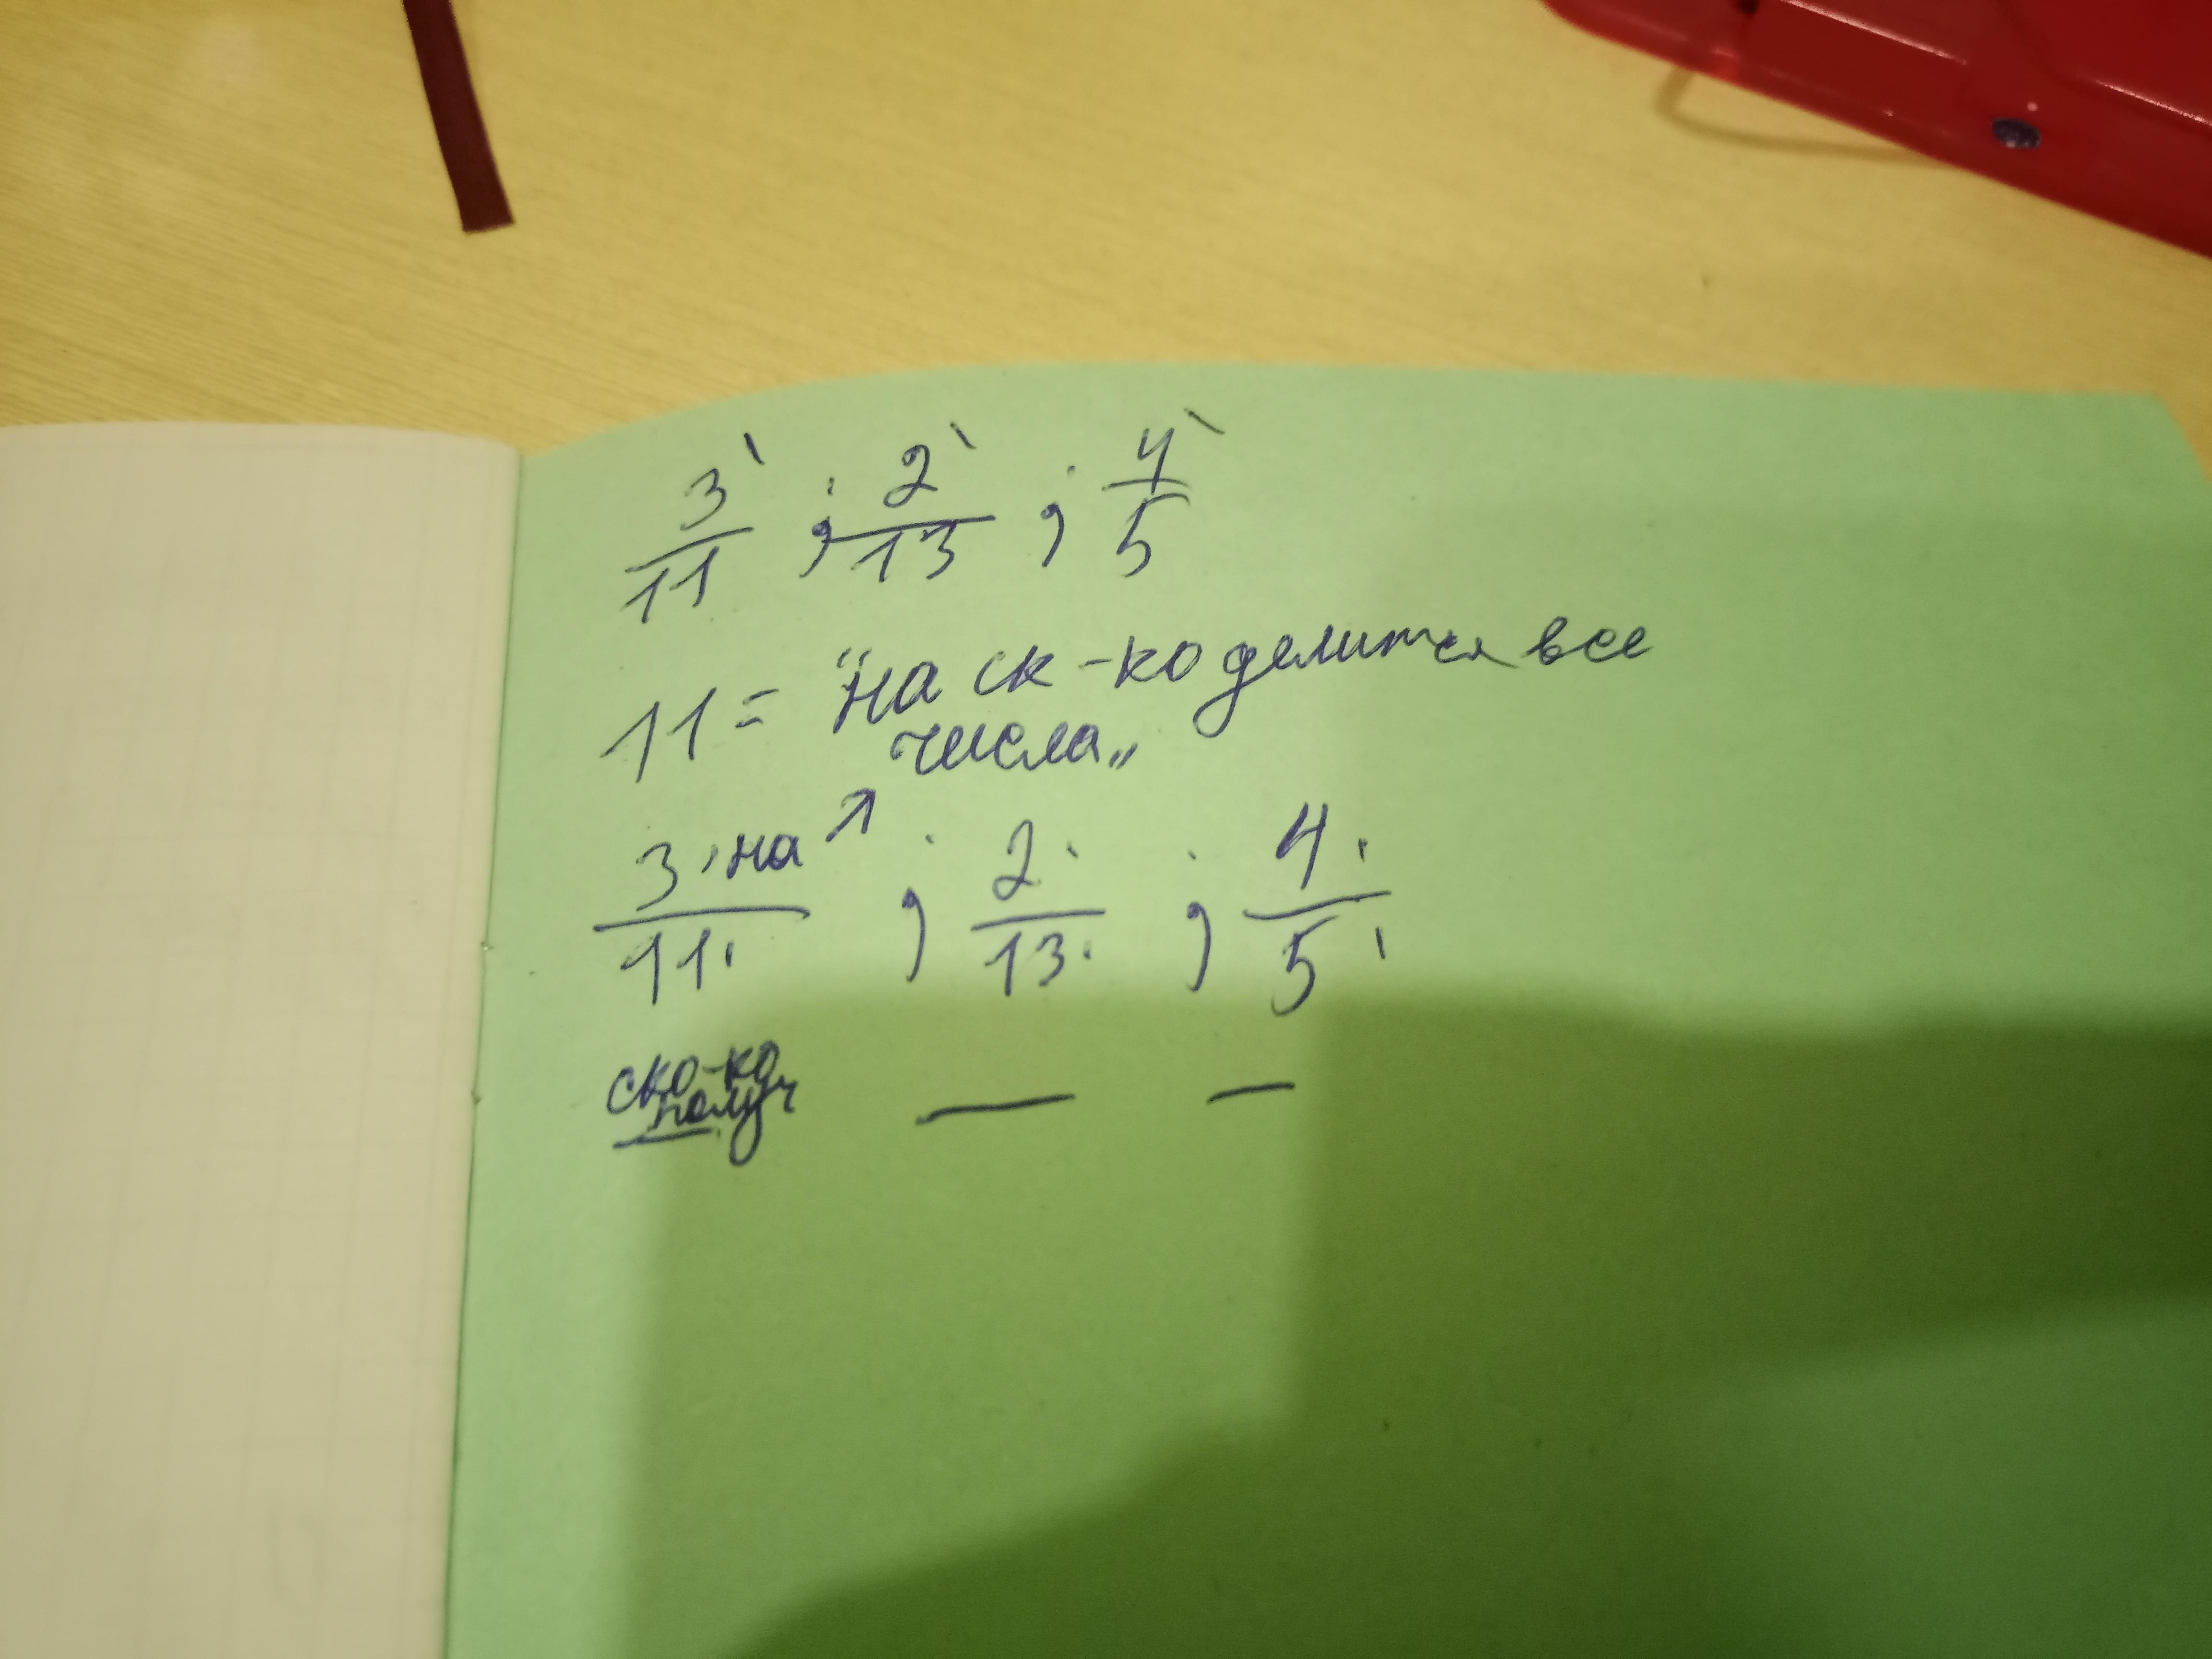 3` ; 2` ; 4`
11 13 5
11 = "на ск-ко делится все
числа„
3 · на ↗ ; 2 · ; 4 ·
11 · 13 · 5 ·
ско-ко
получ — —